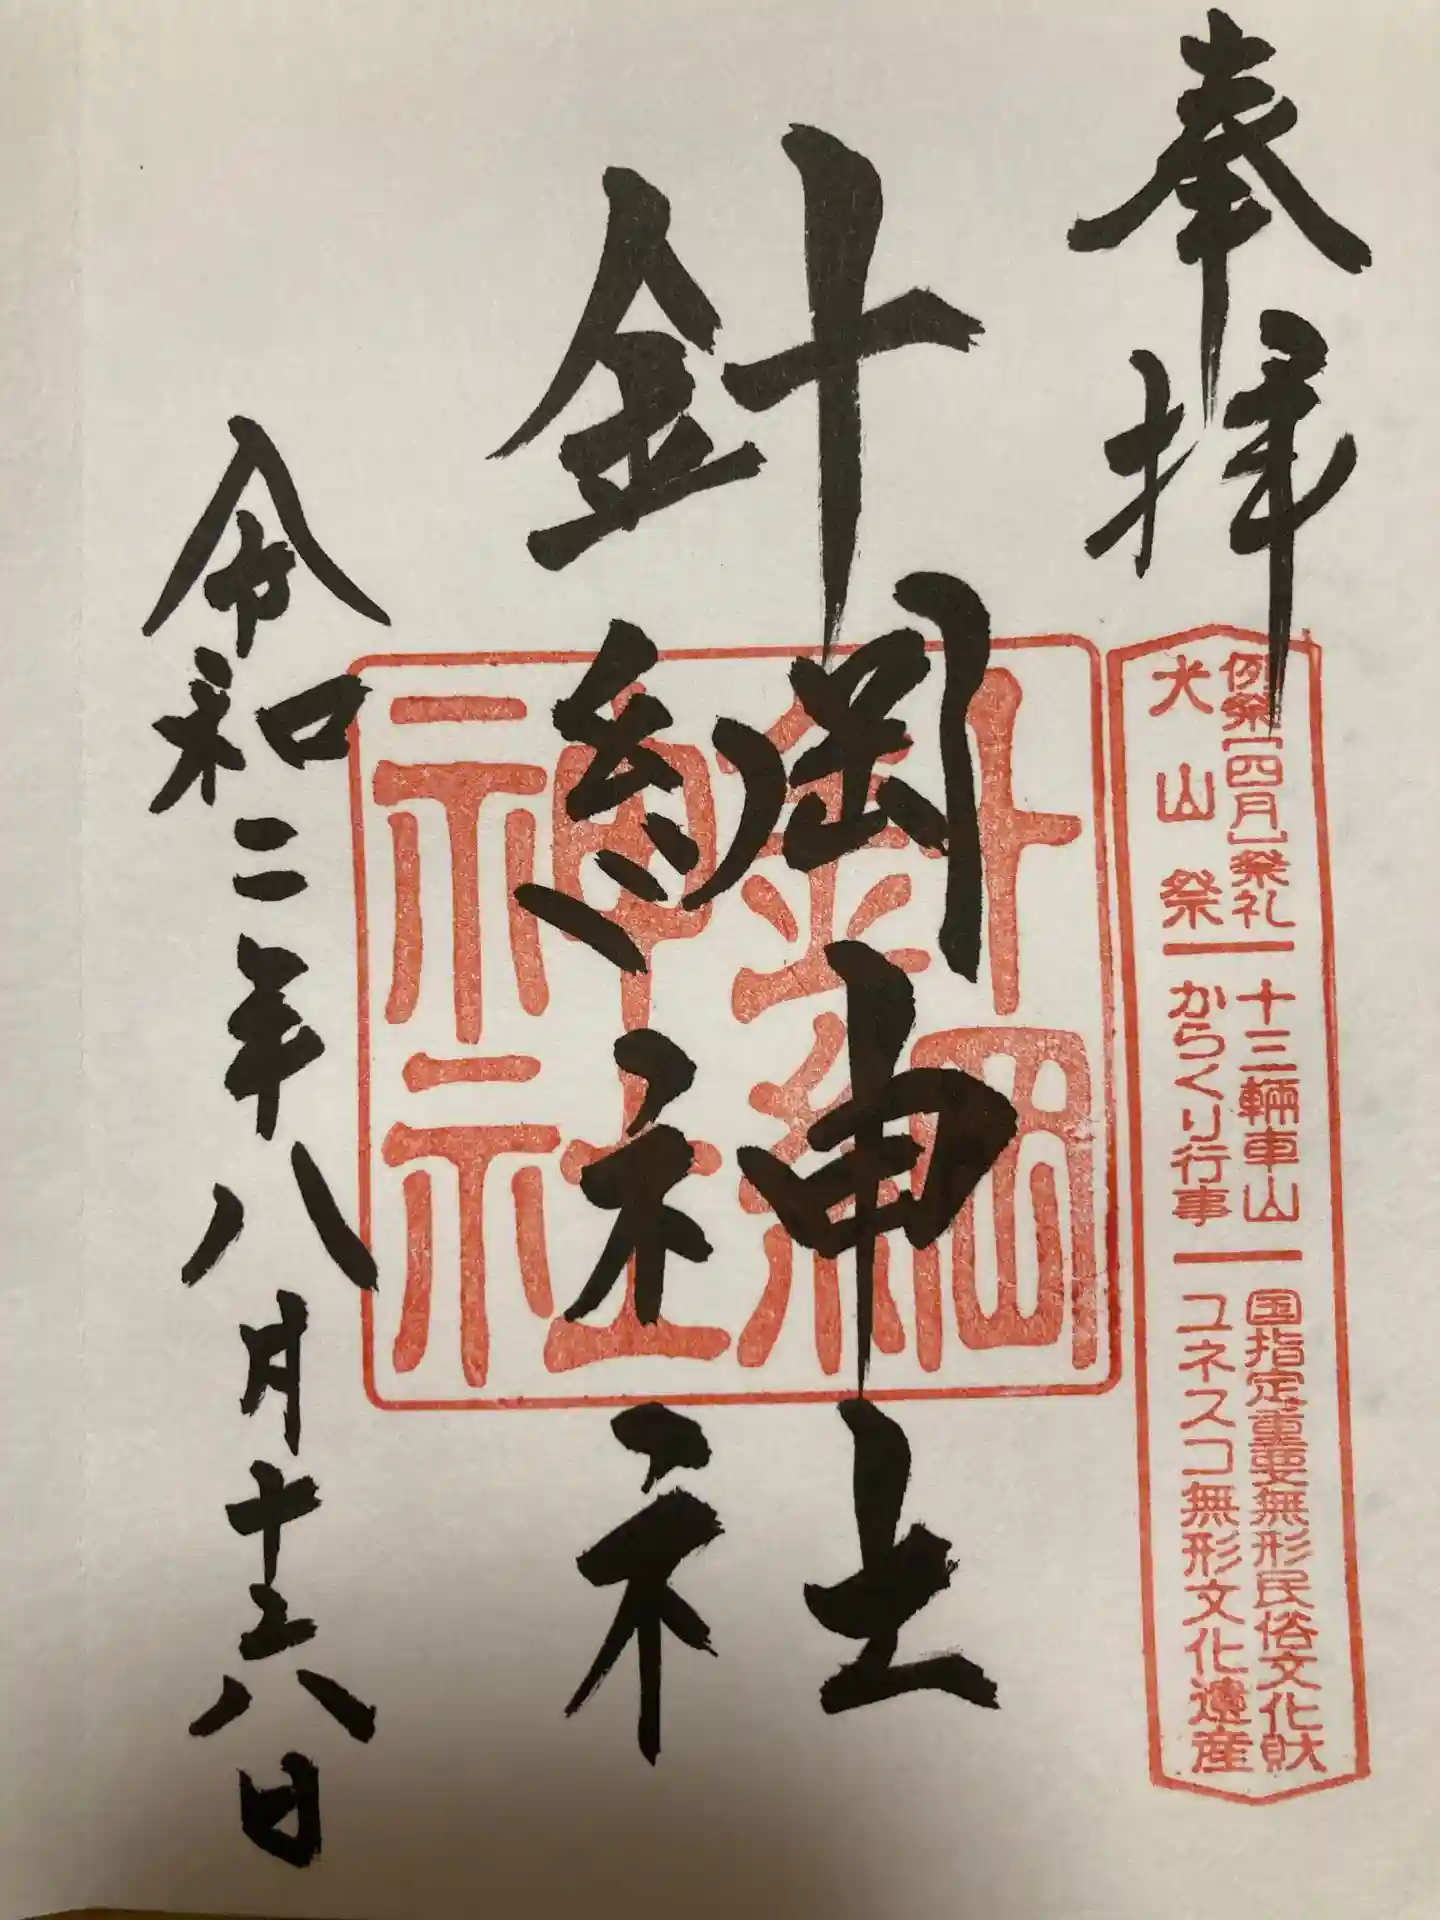 奉拝
例祭［四月］祭礼 十三輛車山 国指定重要無形民俗文化財
犬山祭 からくり行事 ユネスコ無形文化遺産
針綱神社
針綱
神社
令和二年八月十六日